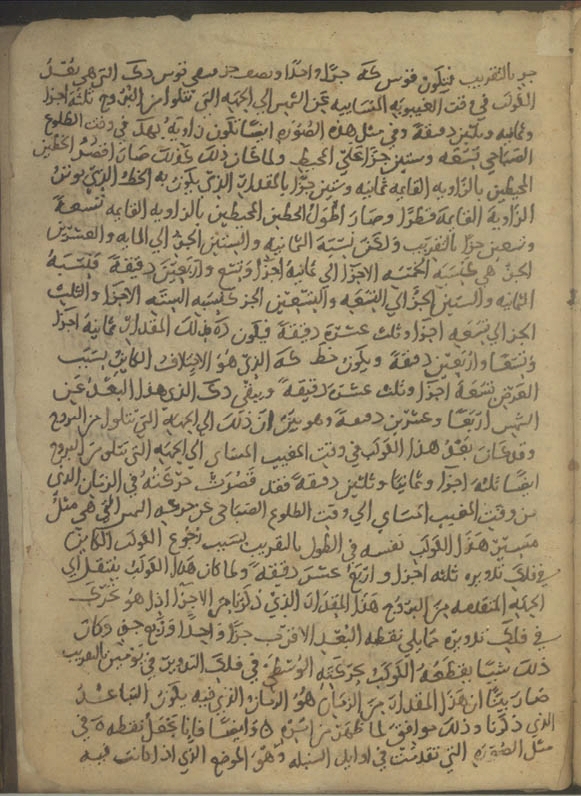 جز بالتقريب فيكون قوس كه جزا واحدا ونصف جز وبقى قوس دك التي هي بعد
الكوكب في وقت الغيبوبه المسايه عن الشمس الى الجهه التي تتلوا من البروج ثلثة اجزا
وثمانيه وثلثين دقيقة وفي مثل هذه الصوره ايضا تكون زاويه بهد في وقت الطلوع
الصباحي تسعه وستين جزا على المحيط ولما كان ذلك كذلك صار اقصر الخطين
المحيطين بالزاويه القايمه ثمانيه وستين جزا بالمقدار الذي يكون به الخط الذي يوتر
الزاويه القايمة قطرا وصار اطول الخطين المحيطين بالزاويه القايمه تسعة
وتسعين جزا بالتقريب ولكن نسبة الثمانيه والستين الجز الى المايه والعشرين
الجز هي كنسبة الخمسه الاجزا الى ثمانية اجزا وتسع واربعين دقيقة فنسبة
الثمانيه والستين الجز الى التسعه والتسعين الجز كنسبة السته الاجزا والثلث
الجز الى تسعه اجزا وثلث عشرة دقيقة فيكون ده بذلك المقدار ثمانية اجزا
وتسعا واربعين دقيقة ويكون خط كه الذي هو الاختلاف الكاين بسبب
العرض تسعة اجزا وثلث عشرة دقيقة ويبقى دك الذي هذا البعد عن
الشمس اربعا وعشرين دقيقة وهو بين ان ذلك الى الجهه التي تتلوا من البروج
وقد كان بعد هذا الكوكب في وقت المغيب المساي الى الجهه التي تتلوا من البروج
ايضا ثلثه اجزا وثمانيا وثلثين دقيقة فقد قصرت حركته في الزمان الذي
من وقت المغيب المساي الى وقت الطلوع الصباحي عن حركه الشمس التي هي مثل
مسير هذا الكوكب نفسه في الطول بالتقريب بسبب رجوع الكوكب الكاين
في فلك تدويره ثلثه اجزا واربع عشرة دقيقة ولما كان هذا الكوكب ينتقل الى
الجهه المتقدمه من البروج هذا المقدار الذي ذكرنا من الاجزا اذا هو تحرك
في فلك تدويره مما يلي نقطه البعد الاقرب جزا واحدا وربع جز وكان
ذلك شيا يقطعه الكوكب بحركته الوسطى في فلك التدوير في يومين بالتقريب
صار بينا ان هذا المقدار من الزمان هو الزمان الذي فيه يكون التباعد
الذي ذكرنا وذلك موافق لما ظهر من امره وايضا فانا نجعل نقطه ه في
مثل الصوره التي تقدمت في اوايل السنبله وهو الموضع الذي اذا كانت فيه